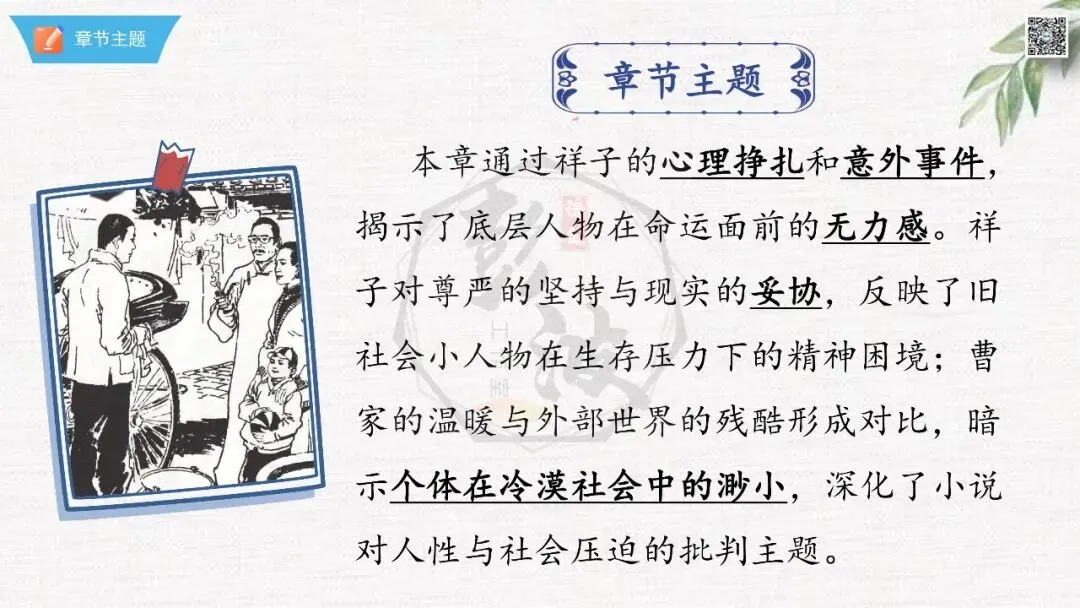 章节主题
章节主题
本章通过祥子的心理挣扎和意外事件，
揭示了底层人物在命运面前的无力感。祥
子对尊严的坚持与现实的妥协，反映了旧
社会小人物在生存压力下的精神困境；曹
家的温暖与外部世界的残酷形成对比，暗
示个体在冷漠社会中的渺小，深化了小说
对人性与社会压迫的批判主题。